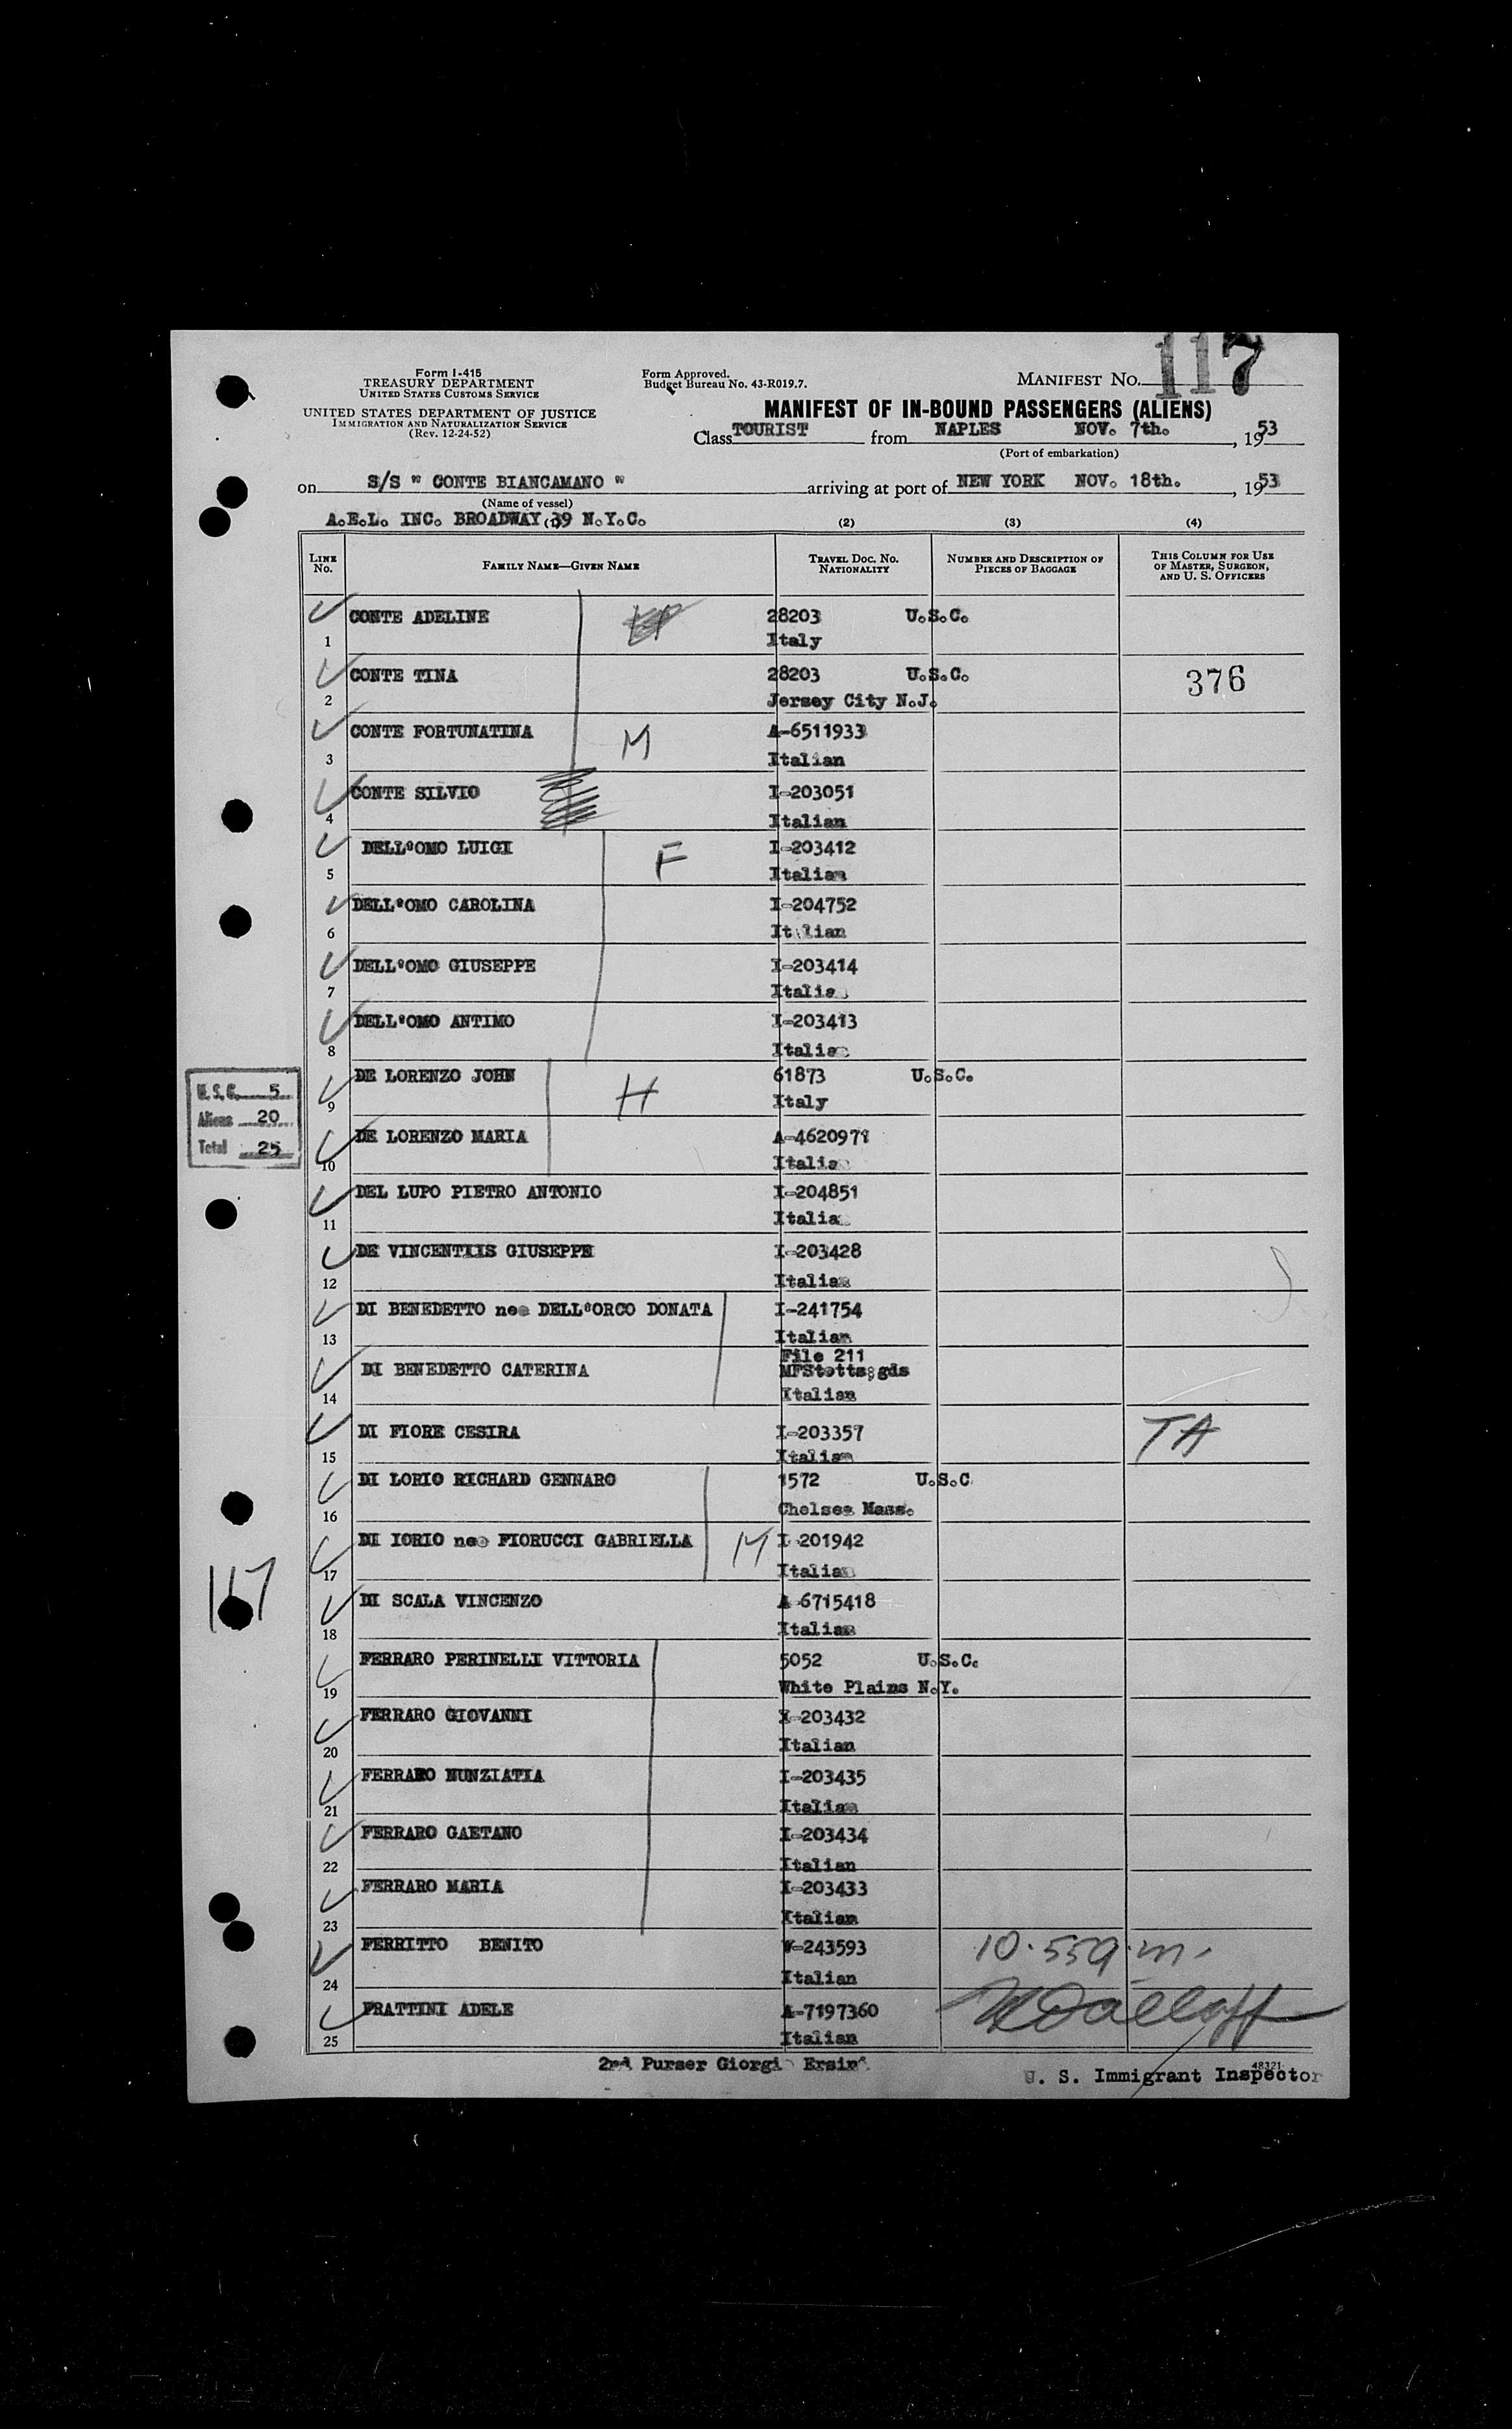 117
Form I-415
TREASURY DEPARTMENT
UNITED STATES CUSTOMS SERVICE
UNITED STATES DEPARTMENT OF JUSTICE
IMMIGRATION AND NATURALIZATION SERVICE
(Rev. 12-24-52)
Form Approved.
Budget Bureau No. 43-R019.7.
MANIFEST NO.
MANIFEST OF IN-BOUND PASSENGERS (ALIENS)
Class TOURIST from NAPLES NOV. 7th. , 1953
(Port of embarkation)
on S/S " CONTE BIANCAMANO " arriving at port of NEW YORK NOV. 18th. , 1953
(Name of vessel)
A.E.L. INC. BROADWAY 39 N.Y.C.
(1) (2) (3) (4)
LINE NO. FAMILY NAME—GIVEN NAME TRAVEL DOC. NO. NATIONALITY NUMBER AND DESCRIPTION OF PIECES OF BAGGAGE THIS COLUMN FOR USE OF MASTER, SURGEON, AND U. S. OFFICERS
CONTE ADELINE 28203 U.S.C.
1 Italy
CONTE TINA 28203 U.S.C. 376
2 Jersey City N.J.
CONTE FORTUNATINA M A-6511933
3 Italian
CONTE SILVIO I-203051
4 Italian
DELL'OMO LUIGI F I-203412
5 Italian
DELL'OMO CAROLINA I-204752
6 It lian
DELL'OMO GIUSEPPE I-203414
7 Italia
DELL'OMO ANTIMO I-203413
8 Italia
DE LORENZO JOHN H 61873 U.S.C.
9 Italy
U.S.C. 5
Aliens 20
Total 25
DE LORENZO MARIA A-4620971
10 Italia
DEL LUPO PIETRO ANTONIO I-204851
11 Italia
DE VINCENTIIS GIUSEPPE I-203428
12 Italian
DI BENEDETTO nee DELL'ORCO DONATA I-241754
13 Italian
File 211
DI BENEDETTO CATERINA MFStotts;gds
14 Italian
DI FIORE CESIRA I-203357 TA
15 Italian
DI LORIO RICHARD GENNARO 1572 U.S.C
16 Chelsea Mass.
DI IORIO nee FIORUCCI GABRIELLA M I-201942
17 Italian
117
DI SCALA VINCENZO A-6715418
18 Italian
FERRARO PERINELLI VITTORIA 5052 U.S.C.
19 White Plains N.Y.
FERRARO GIOVANNI I-203432
20 Italian
FERRARO NUNZIATIA I-203435
21 Italian
FERRARO GAETANO I-203434
22 Italian
FERRARO MARIA I-203433
23 Italian
FERRITTO BENITO V-243593 10.559.m.
24 Italian
FRATTINI ADELE A-7197360
25 Italian
2nd Purser Giorgi Ersin
48321
U. S. Immigrant Inspector